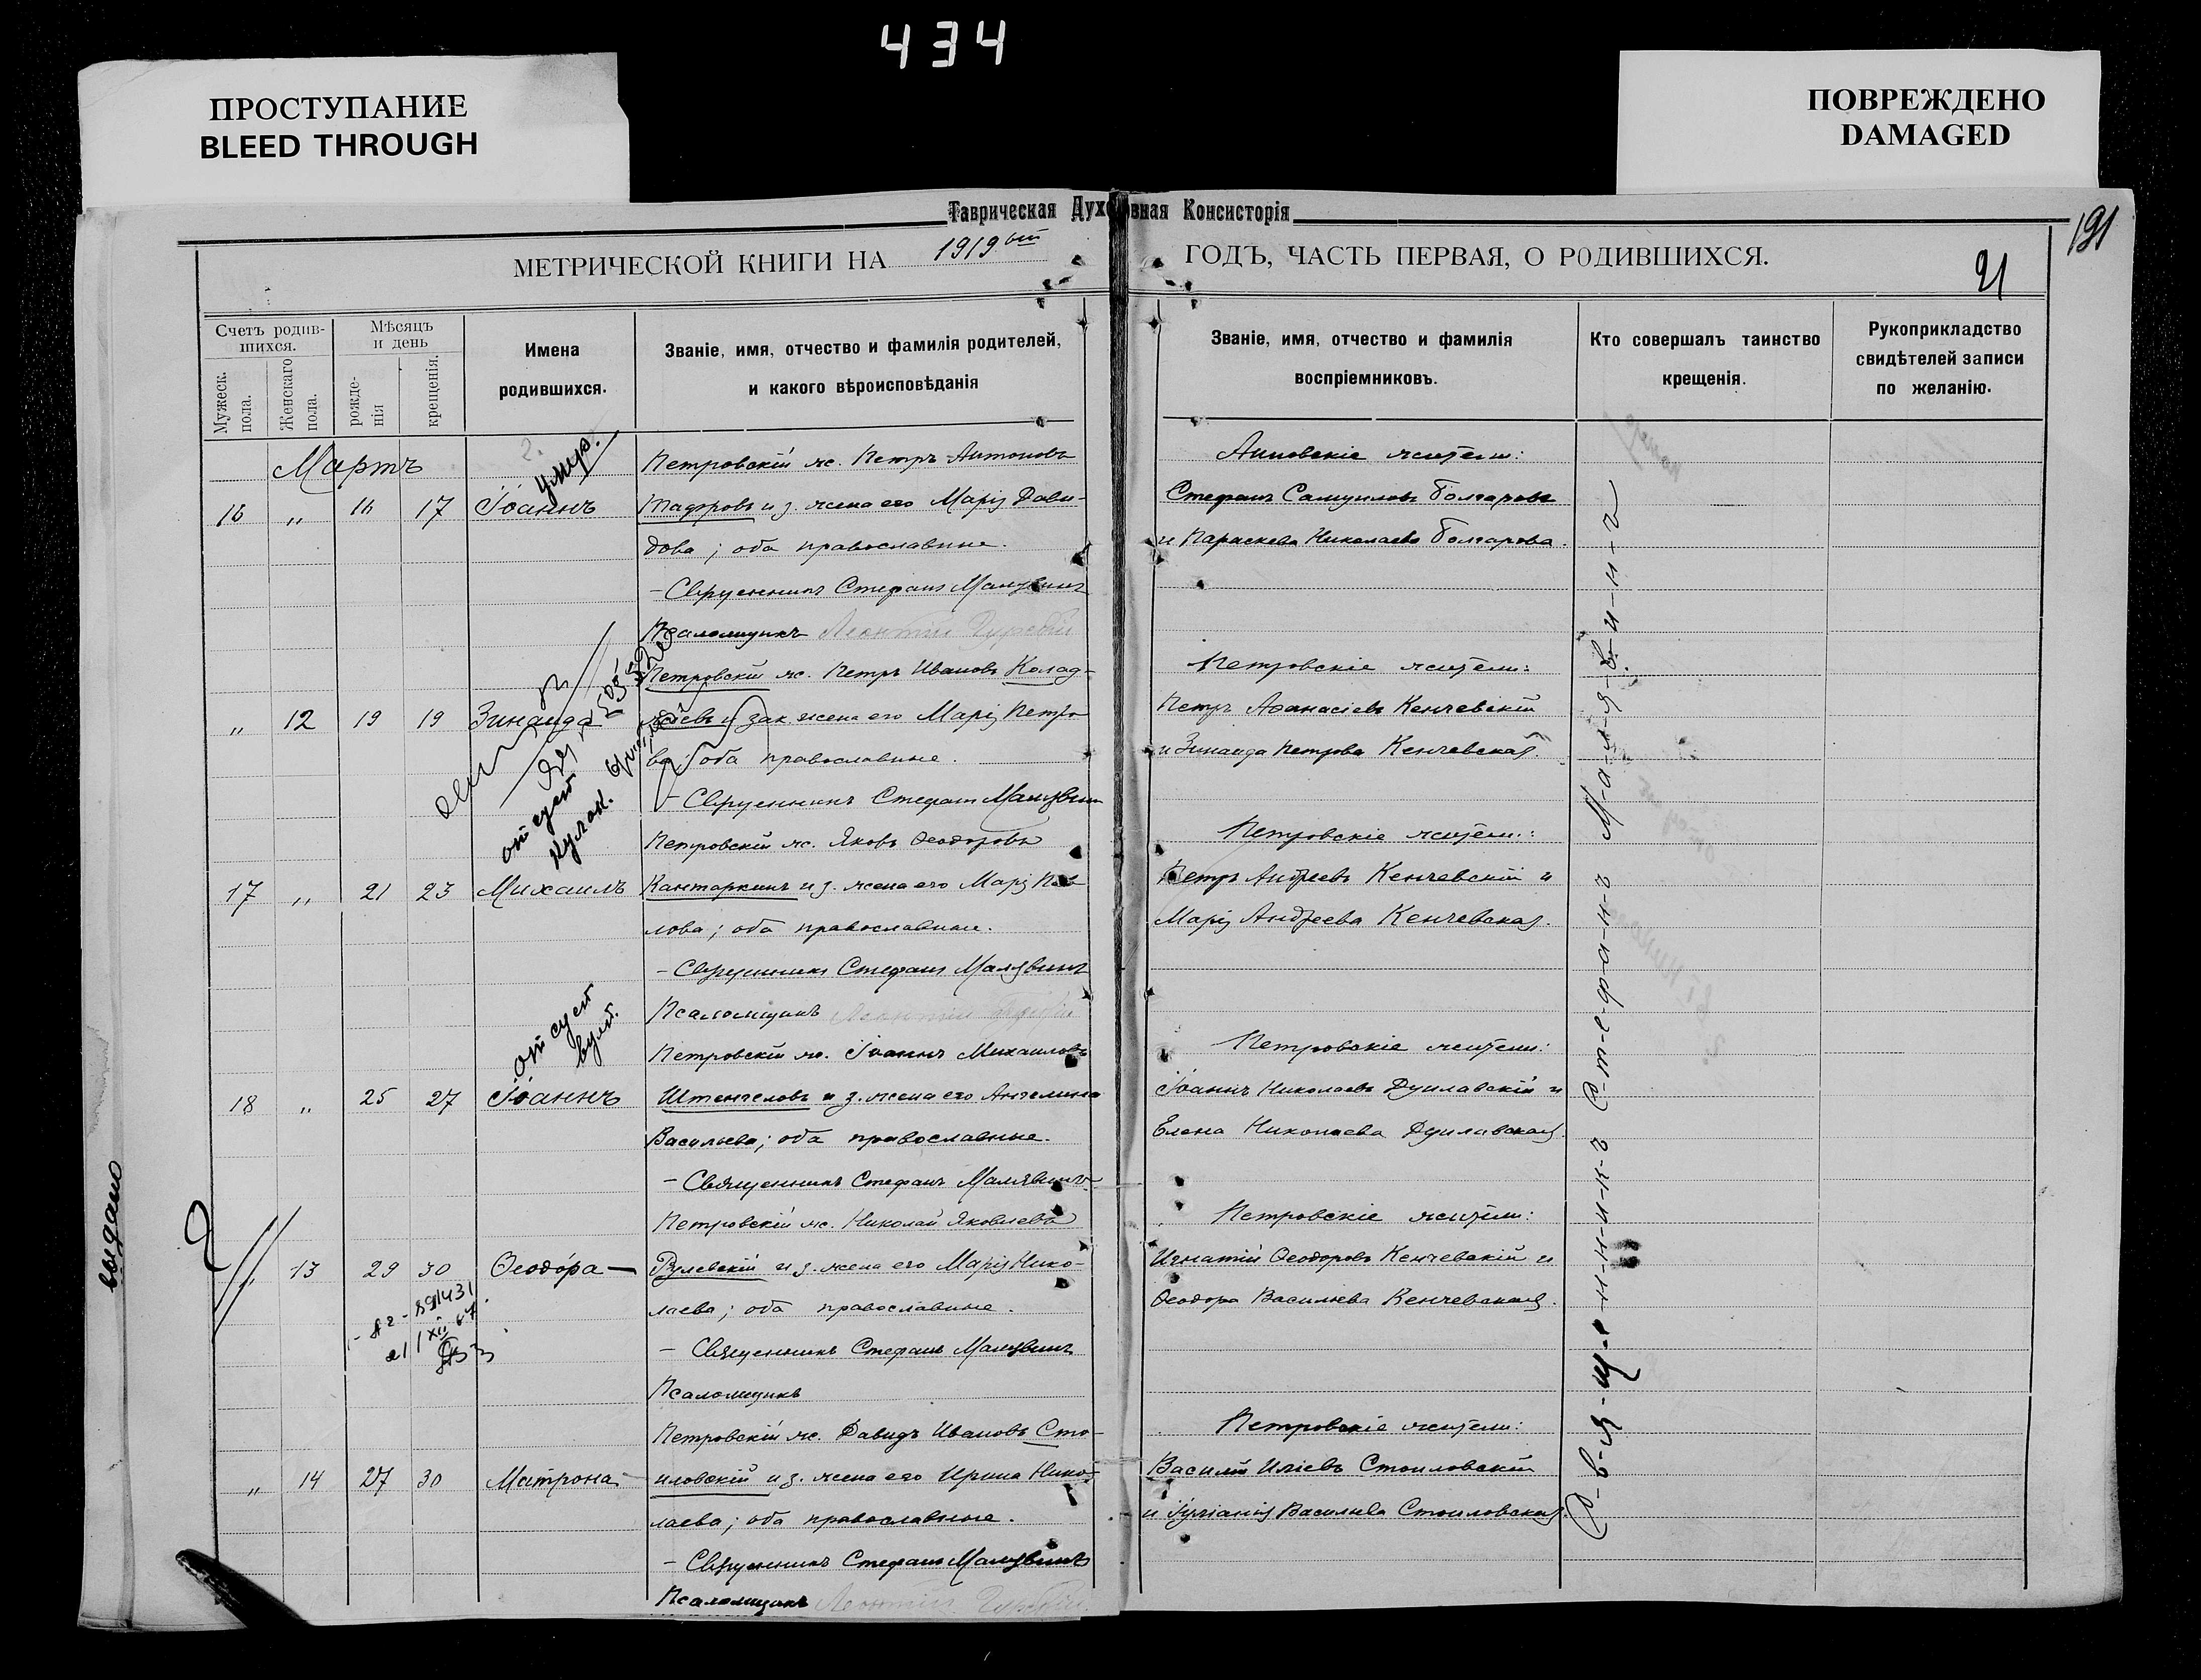 434
ПРОСТУПАНИЕ
BLEED THROUGH
ПОВРЕЖДЕНО
DAMAGED
Таврическая Духовная Консисторія
191
МЕТРИЧЕСКОЙ КНИГИ НА 1919ый ГОДЪ, ЧАСТЬ ПЕРВАЯ, О РОДИВШИХСЯ.
21
Счетъ родив-
шихся.
Мужеск.
пола.
Женскаго
пола.
Мѣсяцъ
и день
рожде-
нія
крещенія.
Имена
родившихся.
Званіе, имя, отчество и фамилія родителей,
и какого вѣроисповѣданія
Званіе, имя, отчество и фамилія
воспріемниковъ.
Кто совершалъ таинство
крещенія.
Рукоприкладство
свидѣтелей записи
по желанію.
Мартъ
умер.
16 „ 16 17 Іоаннъ
Петровскій ж. Петръ Антоновъ
и з. жена его Марія Дави-
дова; оба православные.
- Священникъ Стефанъ Малявинъ
Псаломщикъ Леонтій
жители:
Стефанъ Самуиловъ Болгаровъ
и Параскева Николаева Болгарова.
„ 12 19 19 Зинаида
Петровскій ж. Петръ Ивановъ Колад-
жіевъ и зак. жена его Марія Петро
ва; оба православные.
- Священникъ Стефанъ Малявинъ
Петровскіе жители:
Петръ Афанасіевъ Кенчевскій
и Зинаида Петрова Кенчевская.
отсует
17 „ 21 23 Михаилъ
Петровскій ж. Яковъ Ѳеодоровъ
Кантаржинъ и з. жена его Марія Пав
лова; оба православные.
- Священникъ Стефанъ Малявинъ
Псаломщикъ Леонтій
Петровскіе жители:
Петръ Андреевъ Кенчевскій и
Марія Андреева Кенчевская.
отсует
18 „ 25 27 Іоаннъ
Петровскій ж. Іоаннъ Михаиловъ
Штенгеловъ и з. жена его Ангелина
Васильева; оба православные.
- Священникъ Стефанъ Малявинъ
Петровскіе жители:
Іоаннъ Николаевъ и
Елена Николаева
„ 13 29 30 Ѳеодора
Петровскій ж. Николай Яковлевъ
и з. жена его Марія Нико-
лаева; оба православные.
- Священникъ Стефанъ Малявинъ
Псаломщикъ
Петровскіе жители:
Игнатій Ѳеодоровъ Кенчевскій и
Ѳеодора Васильева Кенчевская.
„ 14 27 30 Матрона
Петровскій ж. Давидъ Ивановъ Сто-
иловскій и з. жена его Ирина Нико-
лаева; оба православные.
- Священникъ Стефанъ Малявинъ
Псаломщикъ Леонтій
Петровскіе жители:
Василій Иліевъ Стоиловскій
и Іуліанія Васильева Стоиловская.
С-в-я-щ-е-н-н-и-к-ъ С-т-е-ф-а-н-ъ М-а-л-я-в-и-н-ъ
выдано